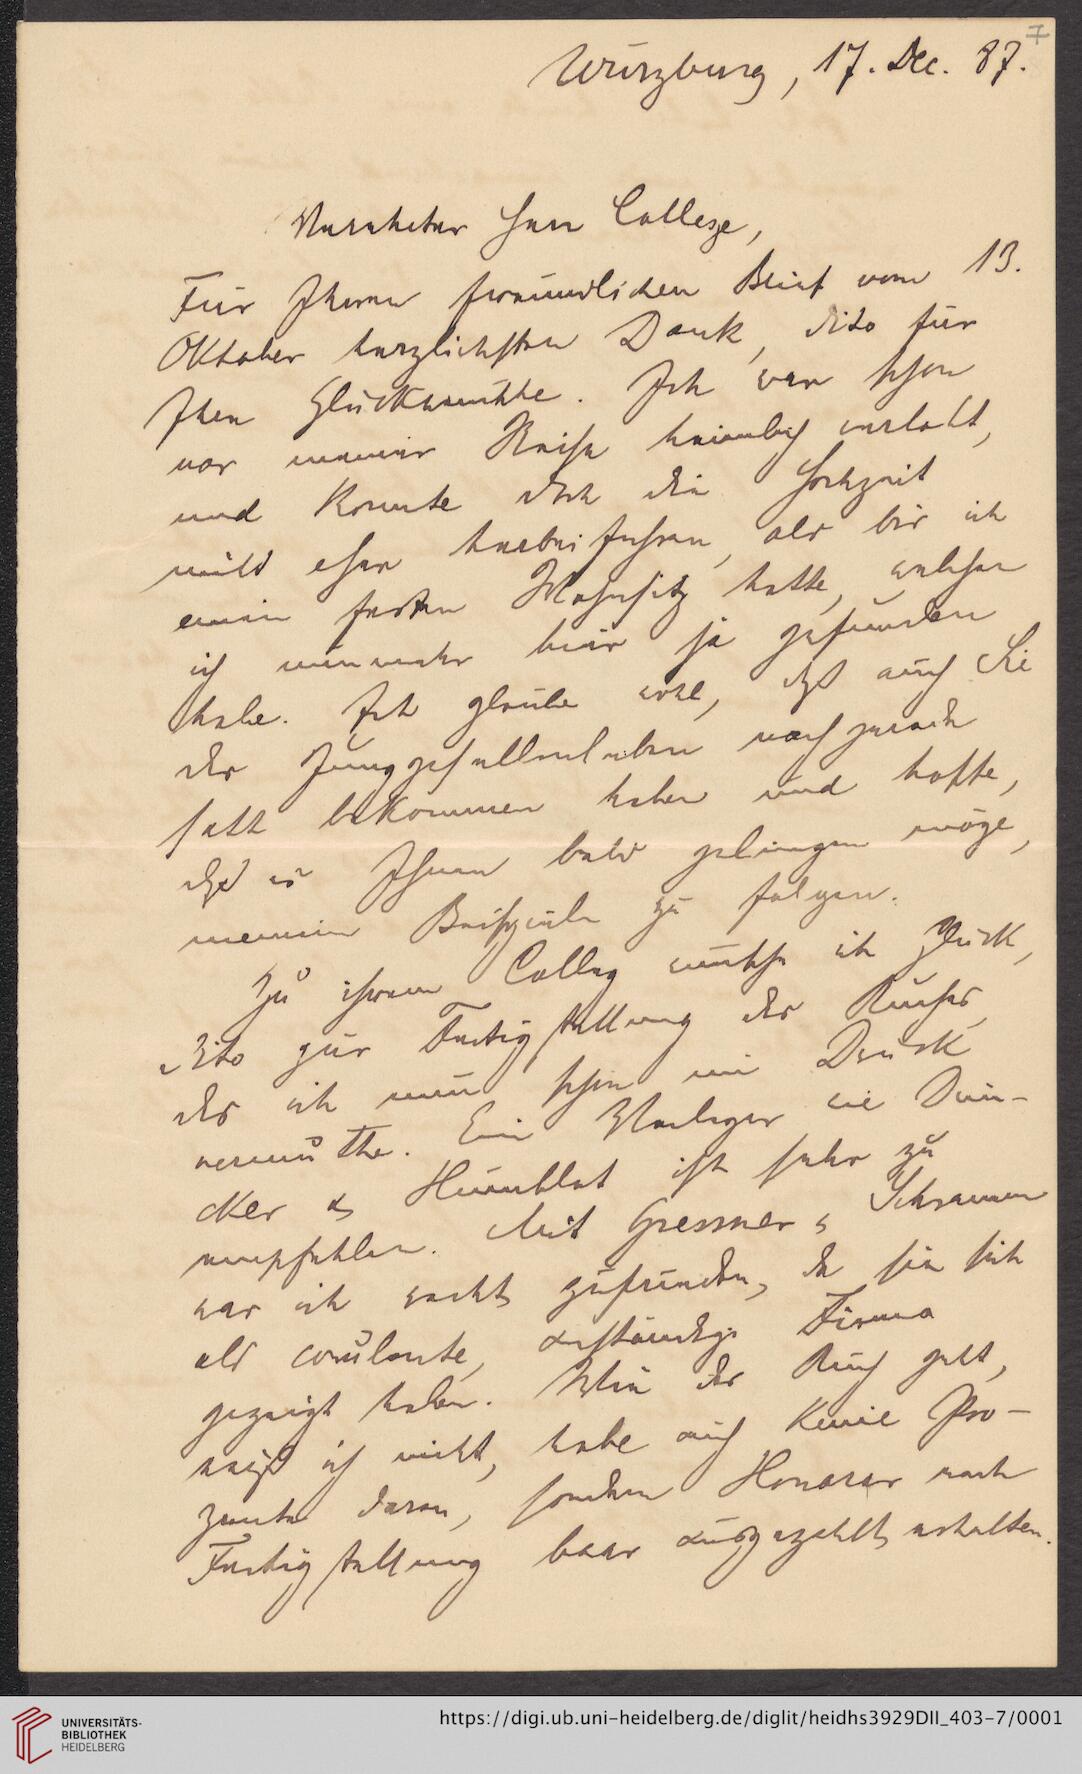 7
Würzburg, 17. Dec. 87.
Verehrter Herr College,
Für Ihren freundlichen Brief vom 13.
Oktober herzlichsten Dank, dito für
Ihren Glückwunsch. Ich war schon
vor meiner Reise heimlich verlobt,
und konnte doch die Hochzeit
nicht eher herbeiführen, als bis ich
einen festen Wohnsitz hatte, welchen
ich nunmehr hier ja gefunden
habe. Ich glaube wohl, daß auch Sie
das Junggesellenleben nachgerade
satt bekommen haben und hoffe,
daß es Ihnen bald gelingen möge,
meinem Beispiele zu folgen.
Zu ihrem Colleg wünsche ich Glück,
dito zur Fertigstellung des Buches,
das ich nun schon im Druck
vermuthe. Ein Verleger wie Dun-
cker & Humblot ist sehr zu
empfehlen. Mit Gressner & Schramm
war ich recht zufrieden, da sie sich
als coulante, anständige Firma
gezeigt haben. Wie das Buch geht,
weiß ich nicht, habe auch keine Pro-
zente daran, sondern Honorar nach
Fertigstellung baar ausgezahlt erhalten.
UNIVERSITÄTS-
BIBLIOTHEK
HEIDELBERG
https://digi.ub.uni-heidelberg.de/diglit/heidhs3929DII_403-7/0001